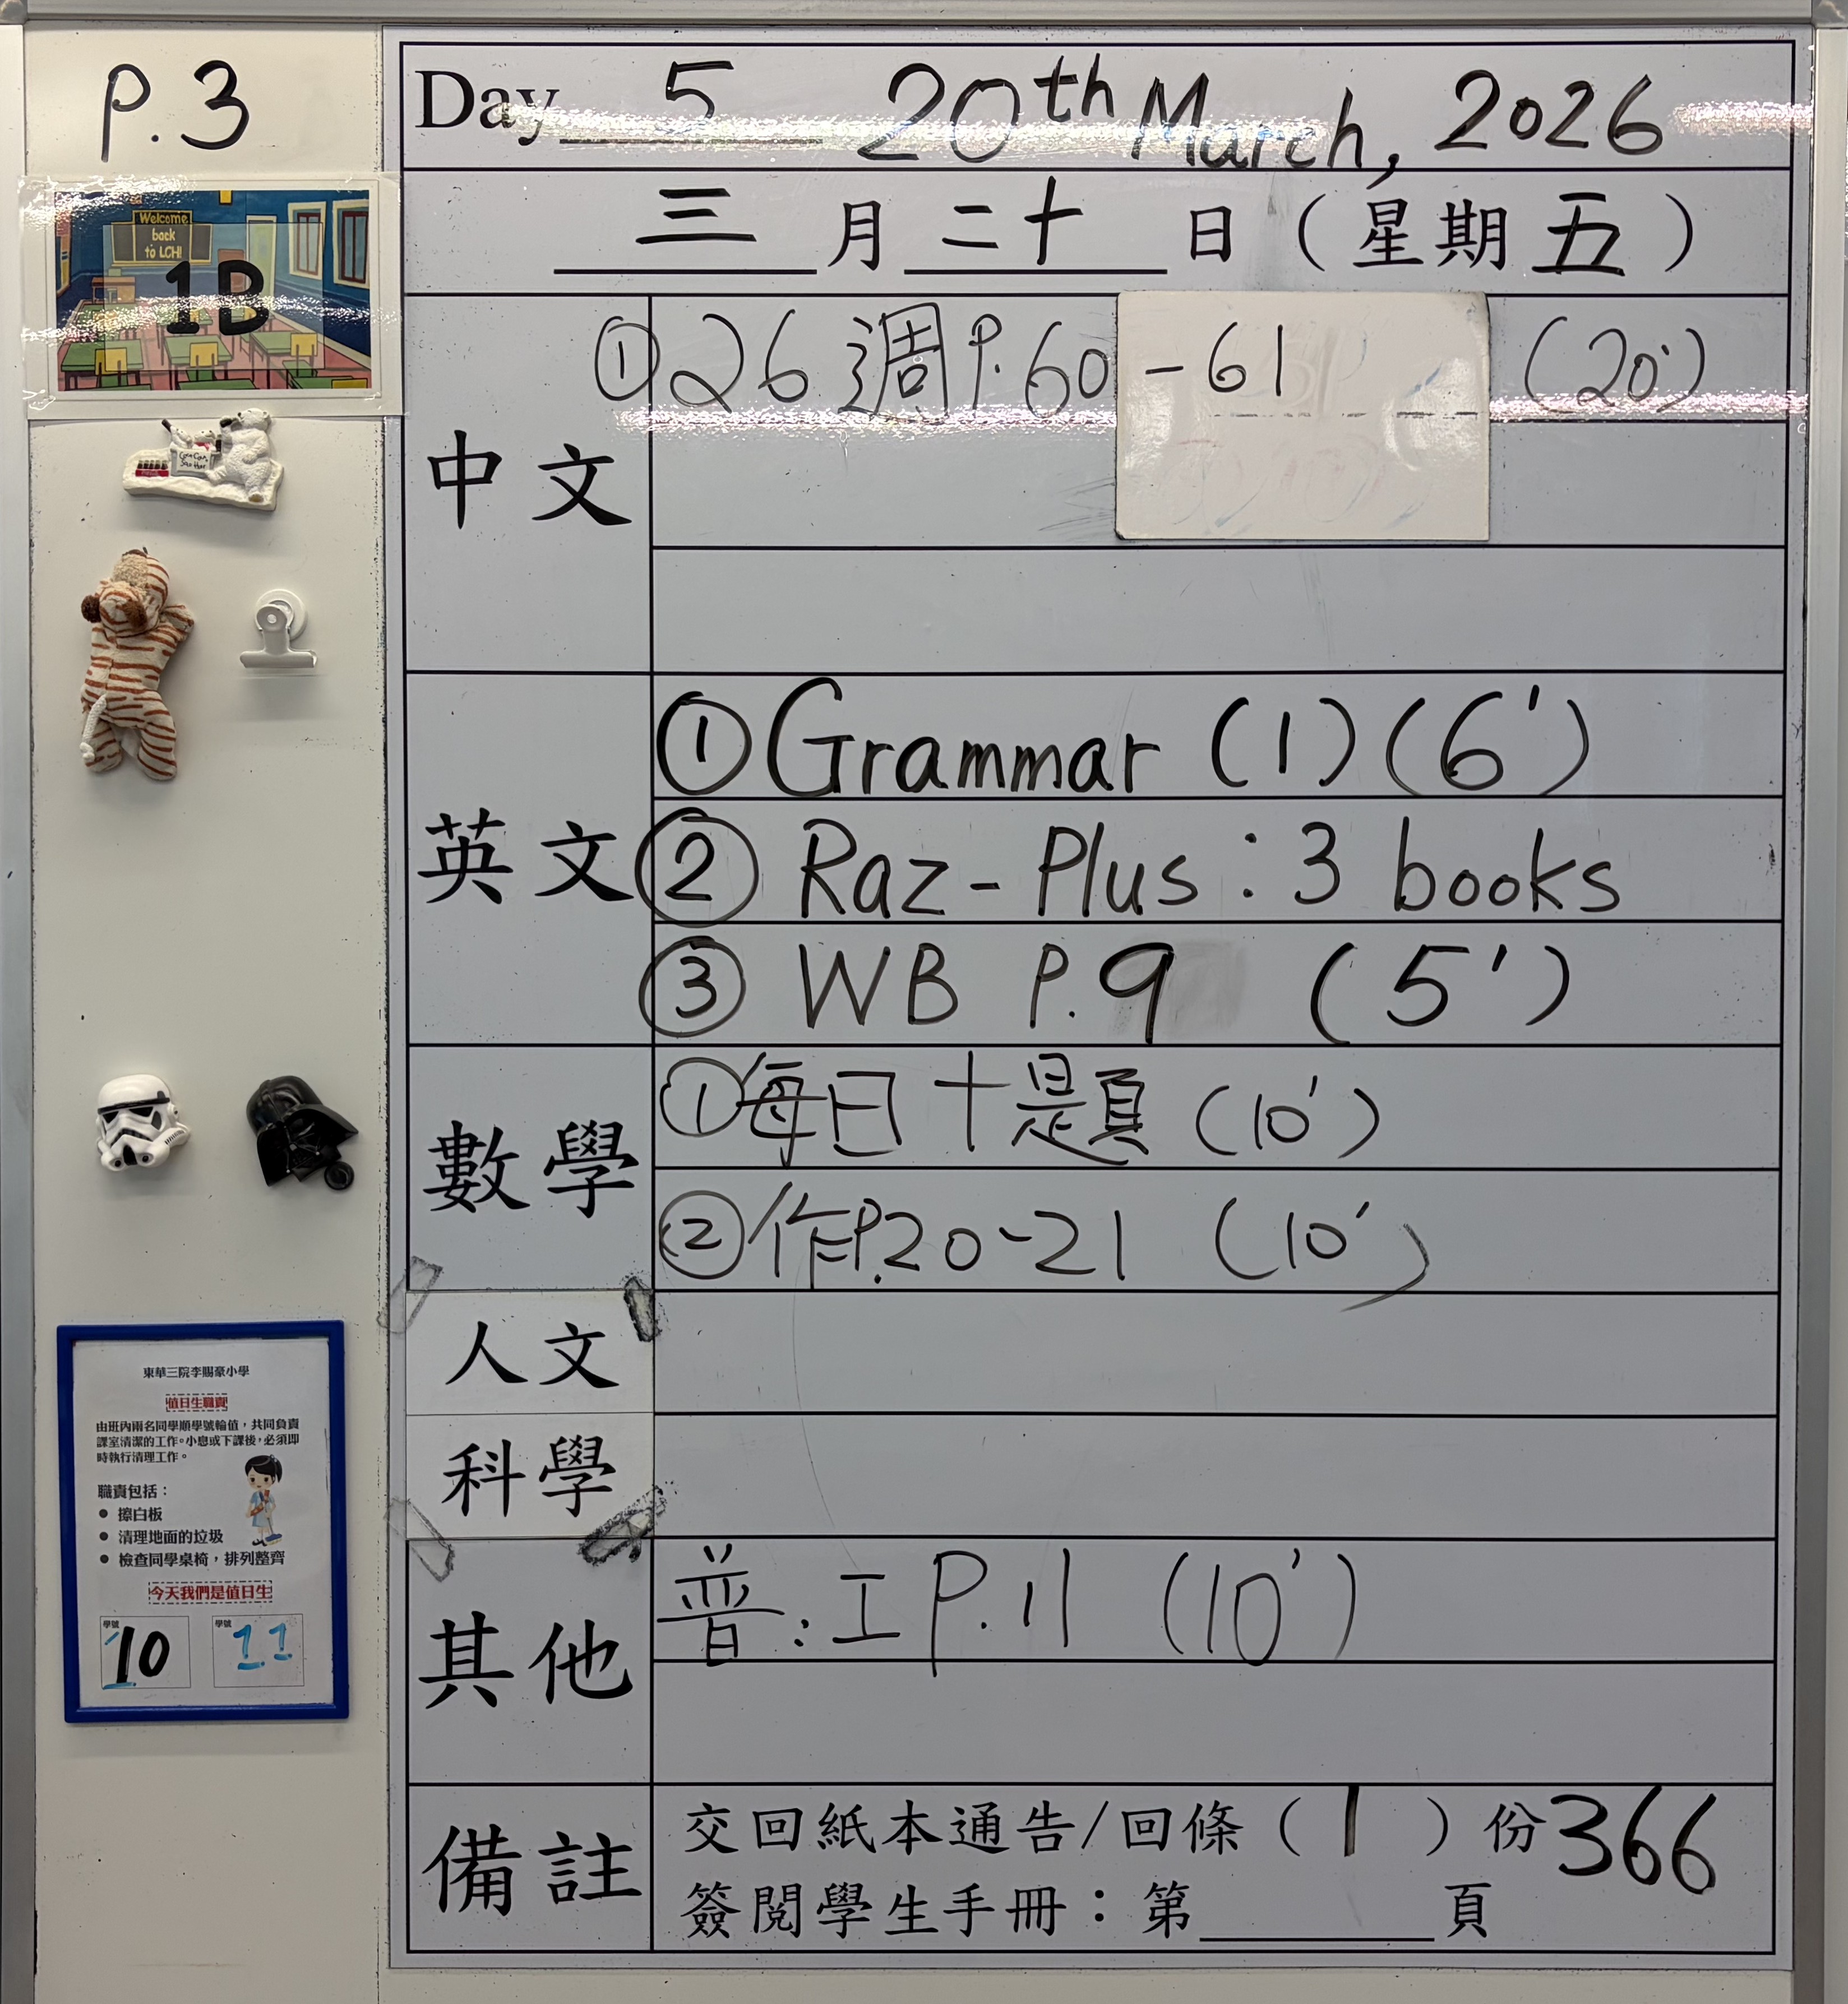 P.3
Day 5 20th March, 2026
三月二十日（星期五）
Welcome
back
to LCH!
1B
中文
①26週P.60-61 (20')
英文
①Grammar (1)(6')
② Raz-Plus: 3 books
③ WB P.9 (5')
數學
①每日十題 (10')
②作P.20-21 (10')
人文
科學
其他
普:工P.11 (10')
備註
交回紙本通告/回條（1）份366
簽閱學生手冊：第____頁
東華三院李賜豪小學
值日生職責
由班內兩名同學順學號輪值，共同負責
課室清潔的工作。小息或下課後，必須即
時執行清理工作。
職責包括：
● 擦白板
● 清理地面的垃圾
● 檢查同學桌椅，排列整齊
今天我們是值日生
學號 10
學號 11